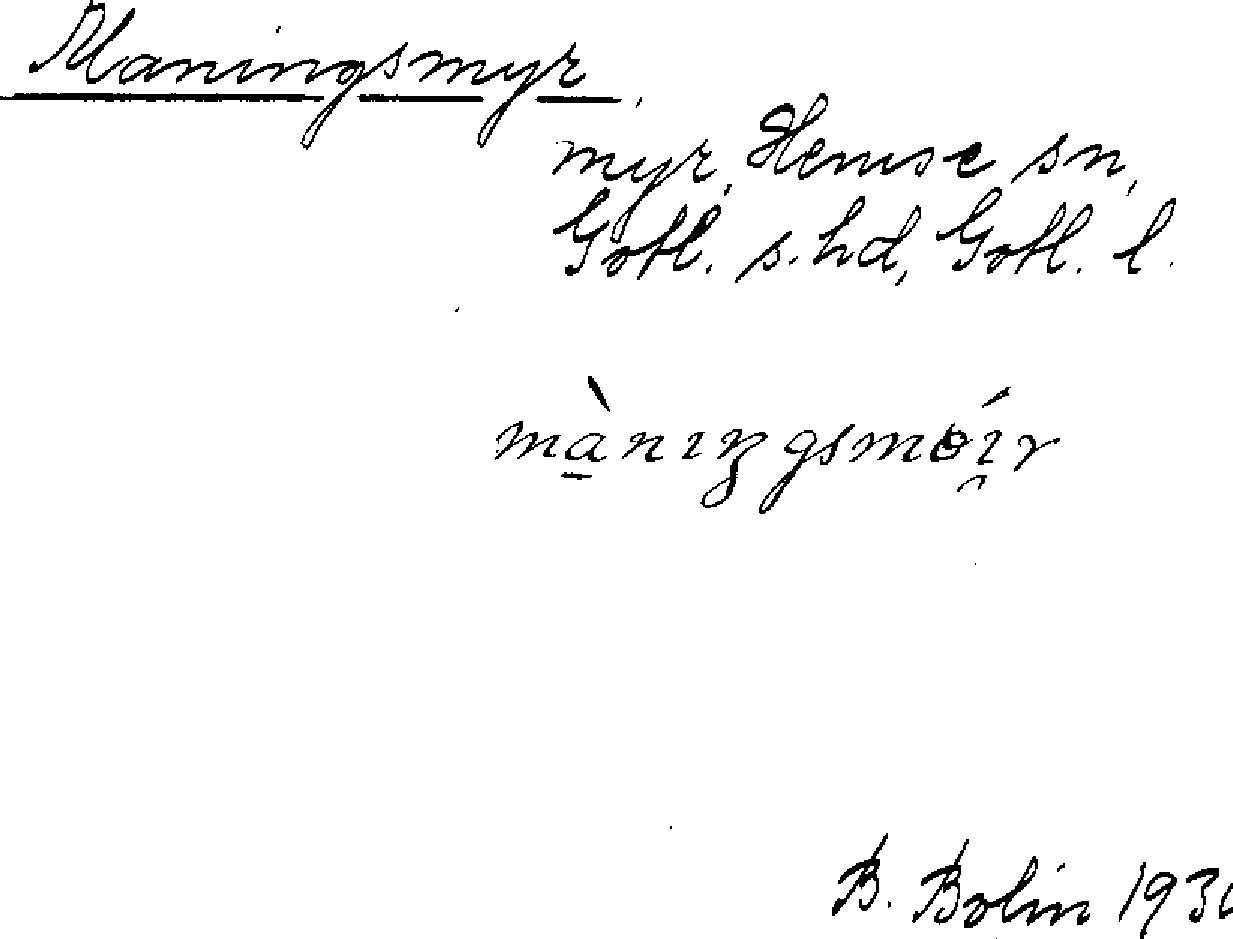 Maningsmyr
myr, Hemse sn,
Gotl. s. hd, Gotl. l.
mànıŋgsmɵ́ı̯r
B. Bolin 193